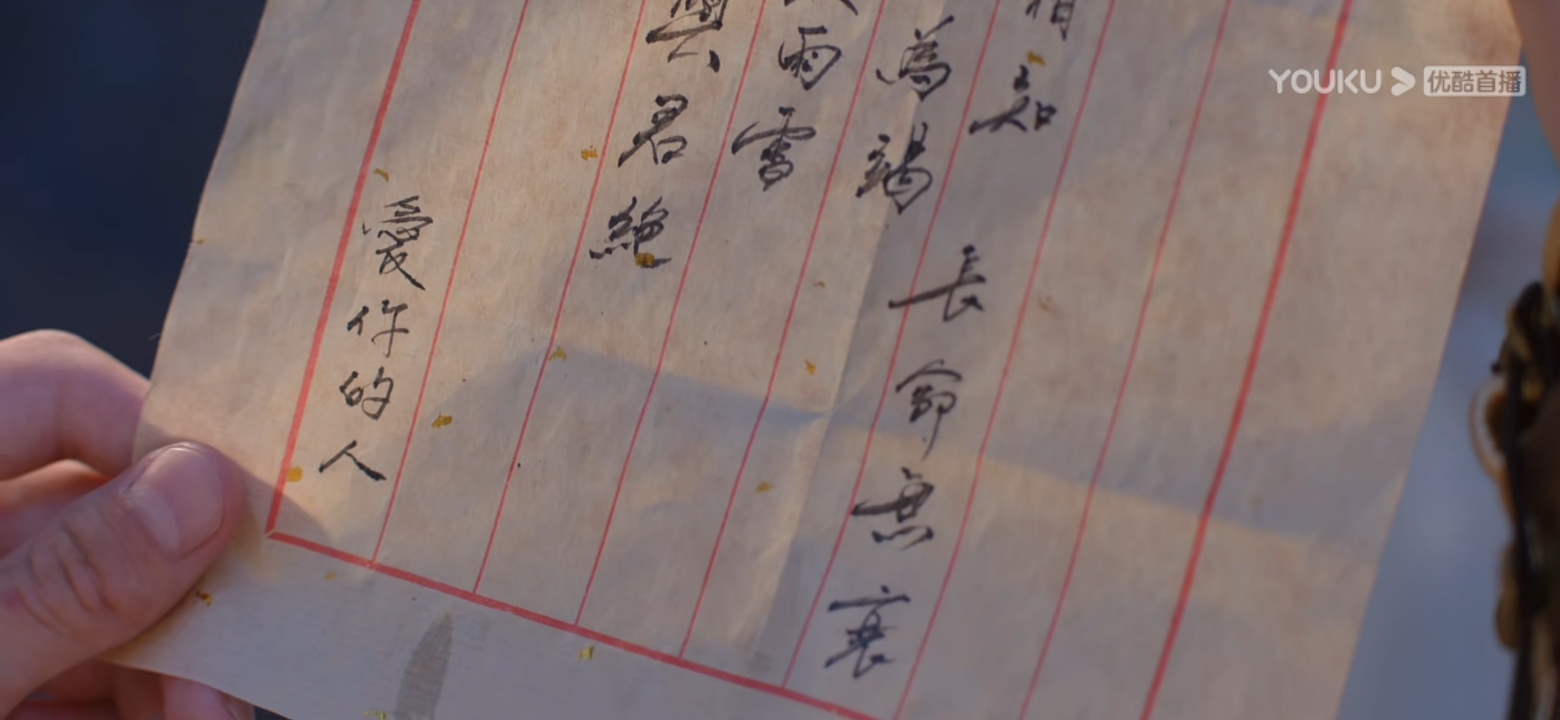 YOUKU 优酷首播
知長命無衰
為竭
雨雪
與君絕
愛你的人